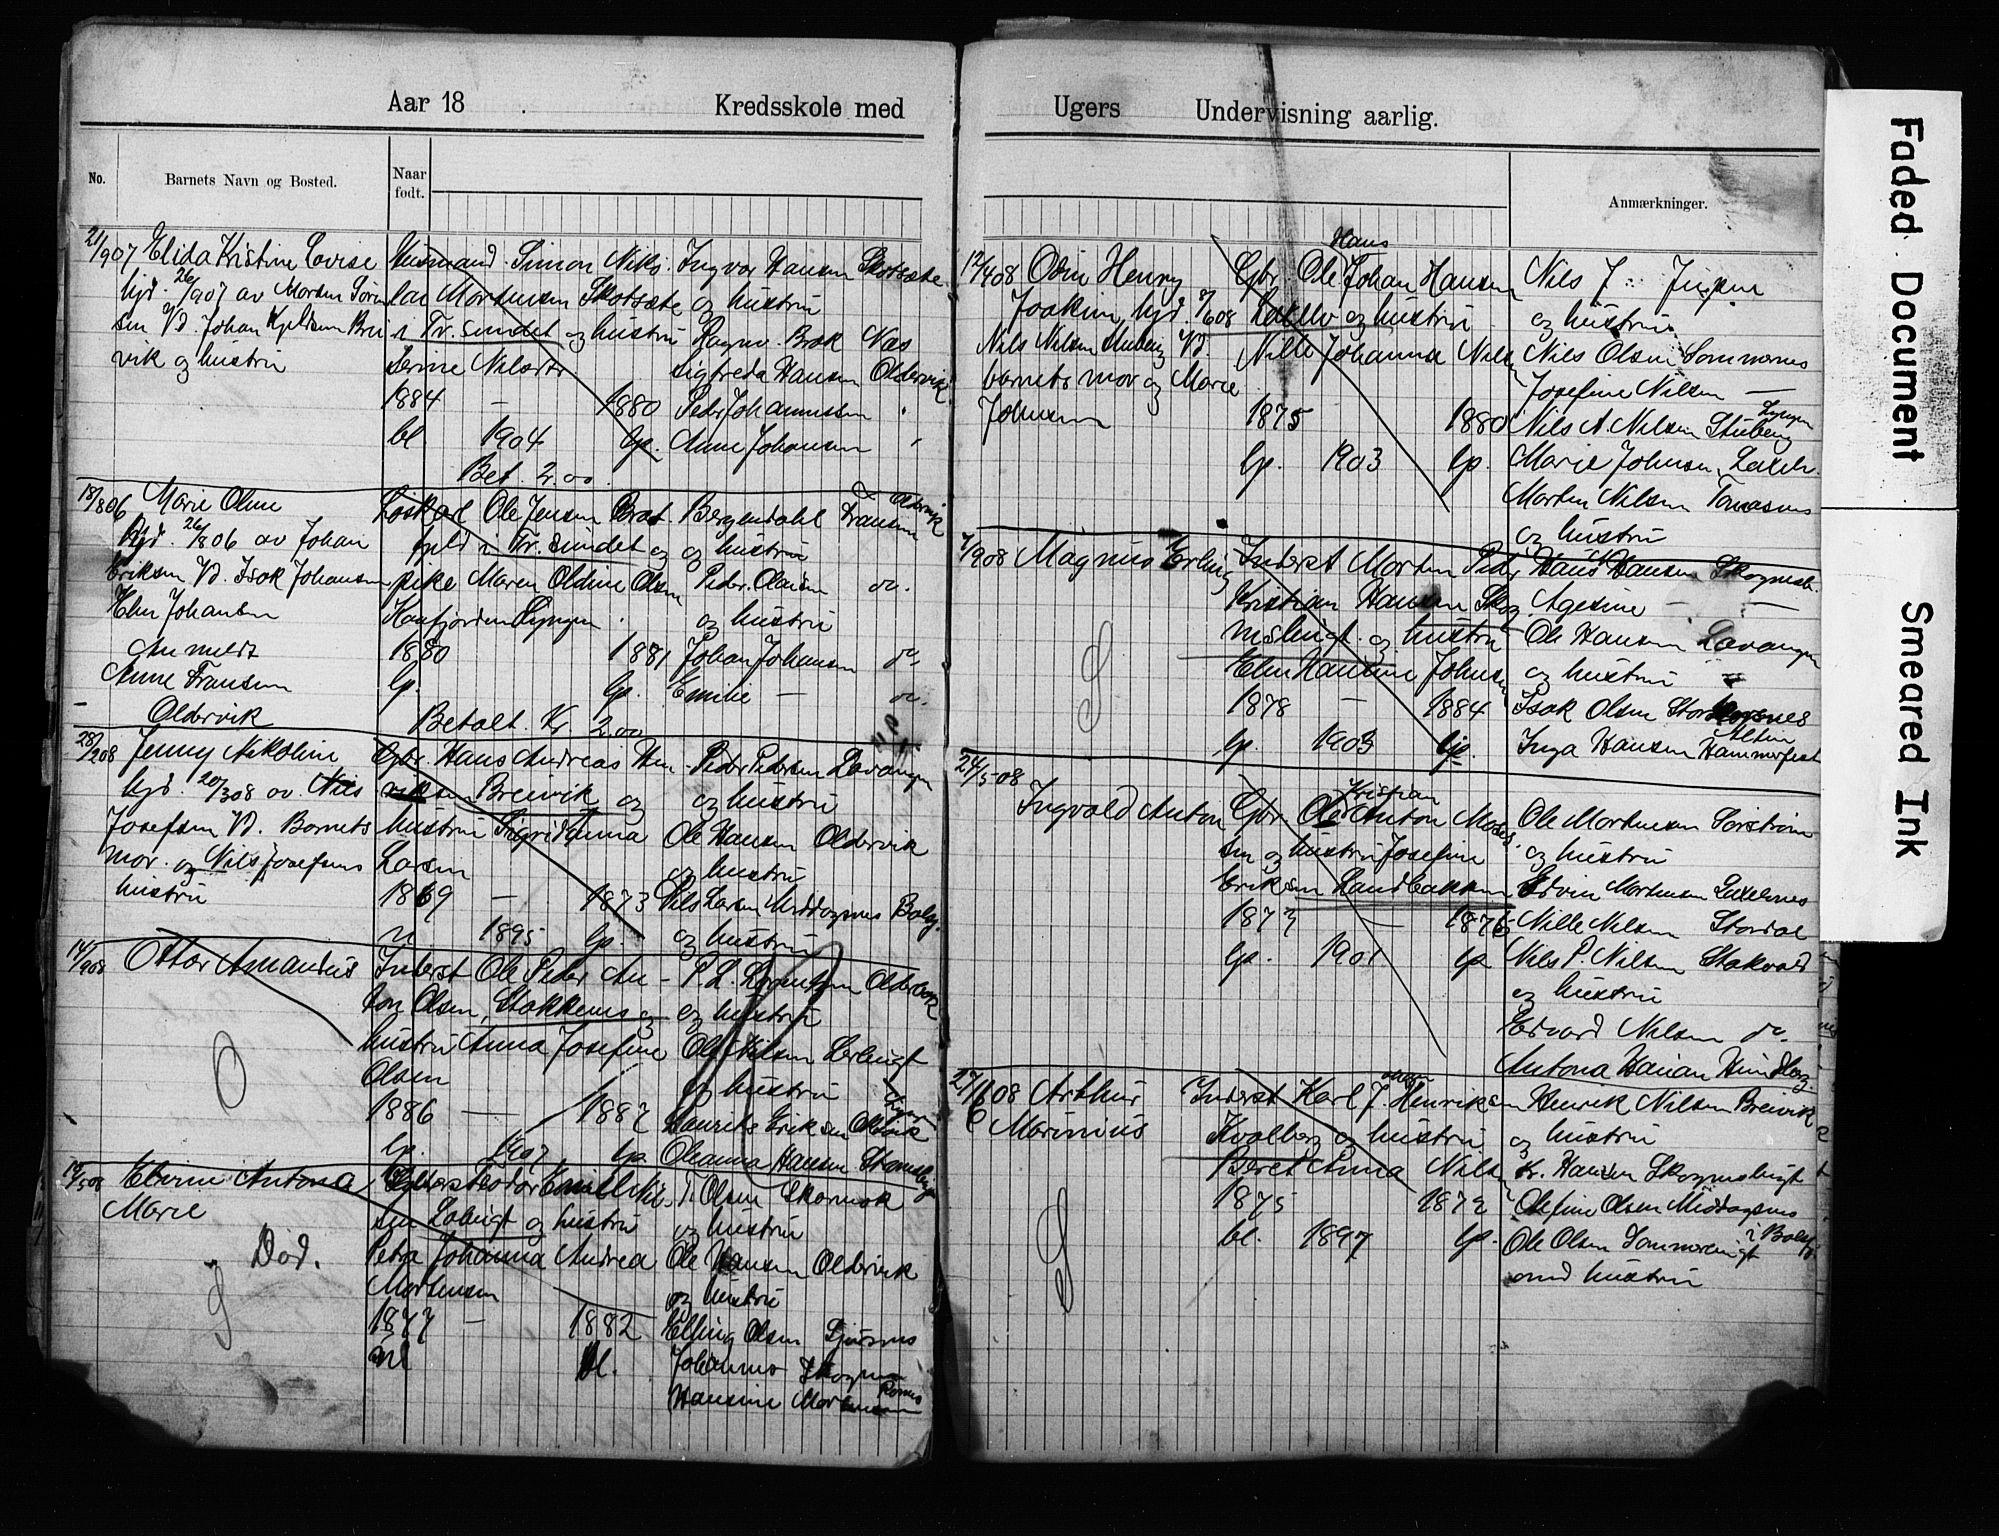 Aar 18 Kredsskole med
No. Barnets Navn og Bosted. Naar født.
21/907 Elida Kristine Lovise
hjd. 26/907 av Morten Sören
sen Vd. Johan Kjeldsen Brei
vik og hustru
Husmand Simon Niko
lai Mortensen Skotsæte
i Tr. sundet og hustru
Serine Nilsdtr.
1884 — 1880
bl 1904 lp.
Bet. 2.00.
Ingvor Hansen Skotsæte
og hustru
Ragnv. Brok Næs
Sigfreda Hansen Oldervik
Peder Johannessen "
Anne Johansen "
18/806 Marie Oline
Hjd. 26/806 av Johan
Eriksen Vd. Isak Johansen
Elen Johansen
Anmeldt
Anne Fransen
Oldervik
Løskarl Ole Jensen Brat
fjeld i Tr. sundet og
pike Maren Oldine Olsen
Kaafjorden Lyngen.
1880 1881
lp. lp.
Betalt Kr 2.00
Bergendahl Fransen Oldervik
og hustru
Peder Olaisen do.
og hustru
Johan Johansen do.
Emilie — do.
28/208 Jenny Nikoline
hjd. 20/308 av Nils
Josefsen Vd. Barnets
mor og Nils Josefsens
hustru
Gbr. Hans Andreas Hen
riksen Breivik og
hustru Sigrid Anna
Larsen
1869 — 1873
1895 lp.
Peder Pedersen Lavangen
og hustru
Ole Hansen Oldervik
og hustru
Nils Larsen Middagsnes Balsfj.
og hustru
14/908 Ottar Amandus
Inderst Ole Peder An
ton Olsen, Stakkenes og
hustru Anna Josefine
Olsen
1886 — 1887
lp. 1907 lp.
P. L. Lorentsen Oldervik
og hustru
Ole Nilsen Lerbugt
og hustru
Laurits Eriksen Oldervik
Oleanna Hansen
14/508 Elvine Antona
Marie
Död.
Teodor Emil Nil
sen Lobugt og hustru
Petra Johanna Andrea
Mortensen
1877 — 1882
bl.
T. Olsen Skarmok
og hustru
Ole Hansen Oldervik
og hustru
Elling Olsen
Johannes
Hansine Mortensen
Ugers Undervisning aarlig.
Anmærkninger.
12/408 Odin Henry
Joakim, hjd. 8/608
Nils Nilsen Stuberg Vd.
barnets mor og Marie
Johnsen
Gbr. Ole Hans Johan Hansen
Lakselv og hustru
Nille Johanna Nilsen
1875 1880
lp. 1903 lp.
Nils J.
og hustru
Nils Olsen Sommernes
Josefine Nilsen —
Nils A. Nilsen Stuberg Lyngen
Marie Johnsen Lakselv
Morten Nilsen Tomasnes
og hustru
7/908 Magnus Erling
Inderst Morten Peder
Kristian Hansen Skog
nesbugt og hustru
Elen Hansine Johnsen
1878 — 1884
lp. 1903 lp.
Hans Hansen Skognesb.
Agesine — —
Ole Hansen Lavangen
og hustru
Isak Olsen Storsnes
Inga Hansen Hammerfest
24/508
Ingvald Anton
Gbr. Ole Kristian Anton Mose
sen og hustru Josefine
Eriksen Sandbakken
1873 — 1876
lp. 1901 lp
Ole Mortensen Sørstrøm
og hustru
Edvin Mortensen Lakselvnes
Nille Nilsen Stordal
Nils P. Nilsen Stakvold
og hustru
Edvard Nilsen do.
Antona
27/808 Arthur
Marinius
Inderst Karl J. Henriksen
Kvalberg og hustru
Beret Anna Nilsen
1875 1872
bl. 1897 lp.
Henrik Nilsen Breivik
og hustru
Kr. Hansen Skognesbugt
Olefine Olsen Middagsnes
i Balsfj.
Ole Olsen Sommerbugt
med hustru
Faded Document
Smeared Ink